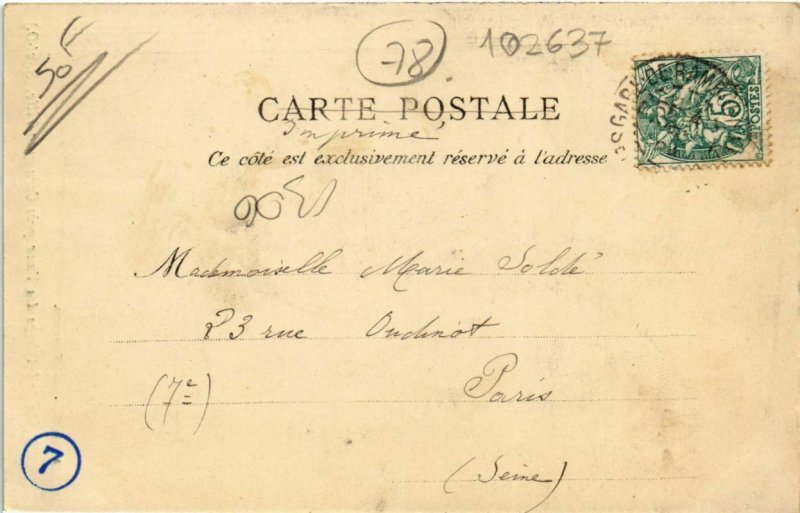 50
78
102637
5
POSTES
CARTE POSTALE
Imprimé
Ce côté est exclusivement réservé à l'adresse
Mademoiselle Marie Soldé
23 rue Oudinot
(7e)
Paris
(Seine)
7